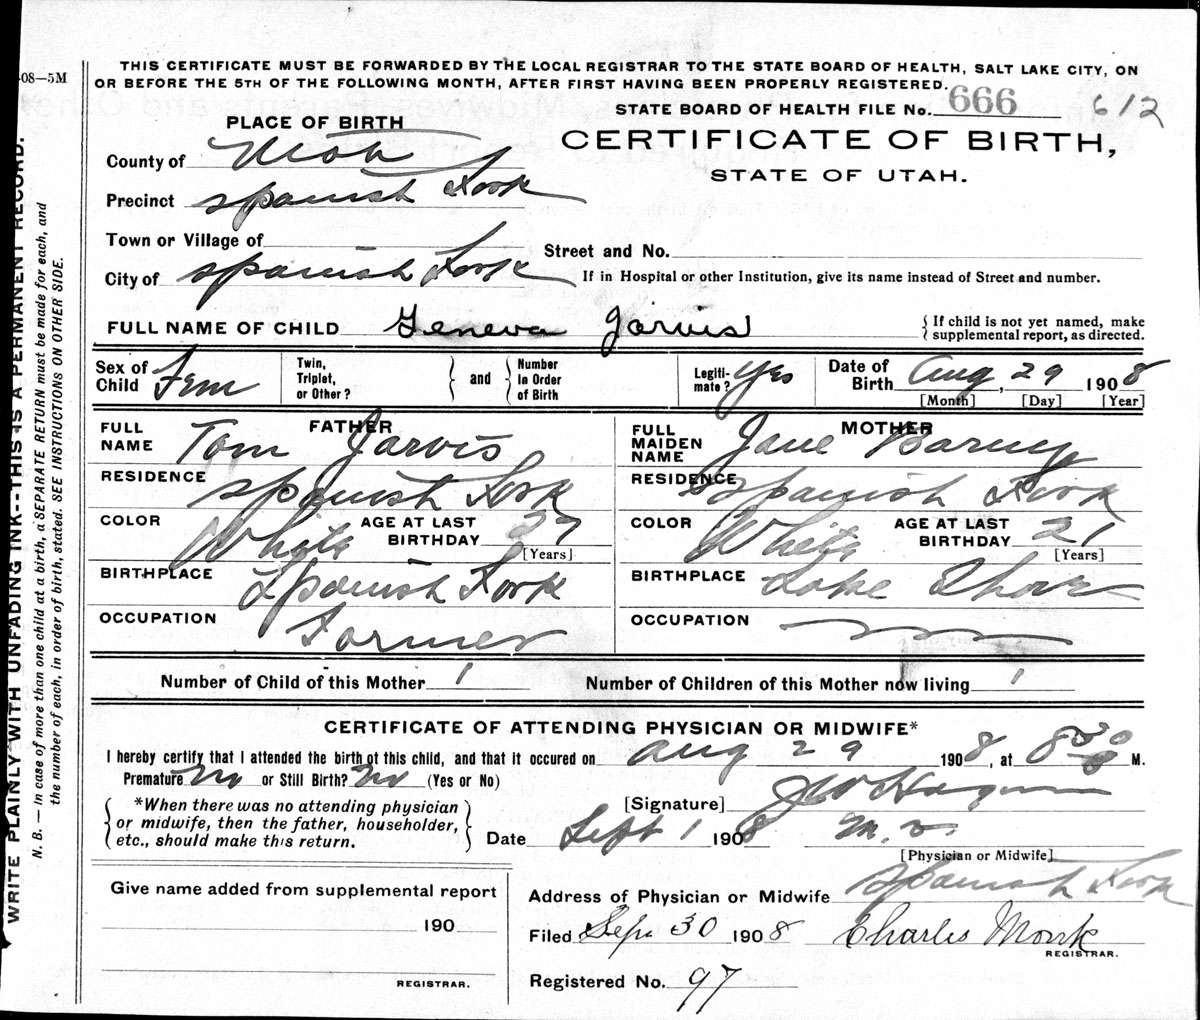 08—5M
THIS CERTIFICATE MUST BE FORWARDED BY THE LOCAL REGISTRAR TO THE STATE BOARD OF HEALTH, SALT LAKE CITY, ON
OR BEFORE THE 5TH OF THE FOLLOWING MONTH, AFTER FIRST HAVING BEEN PROPERLY REGISTERED.
STATE BOARD OF HEALTH FILE No. 666 612
PLACE OF BIRTH
CERTIFICATE OF BIRTH,
STATE OF UTAH.
County of Utah
Precinct Spanish Fork
Town or Village of
Street and No.
City of Spanish Fork
If in Hospital or other Institution, give its name instead of Street and number.
FULL NAME OF CHILD Geneva Jarvis
{ If child is not yet named, make supplemental report, as directed.
Sex of Child Fem
Twin, Triplet, or Other? } and { Number In Order of Birth
Legiti-mate? Yes
Date of Birth Aug, 29 1908
[Month] [Day] [Year]
FATHER
FULL NAME Tom Jarvis
RESIDENCE Spanish Fork
COLOR White AGE AT LAST BIRTHDAY 27 [Years]
BIRTHPLACE Spanish Fork
OCCUPATION Farmer
MOTHER
FULL MAIDEN NAME Jane Barney
RESIDENCE Spanish Fork
COLOR White AGE AT LAST BIRTHDAY 21 [Years]
BIRTHPLACE Lake Shore
OCCUPATION
Number of Child of this Mother 1 Number of Children of this Mother now living 1
CERTIFICATE OF ATTENDING PHYSICIAN OR MIDWIFE*
I hereby certify that I attended the birth of this child, and that it occured on Aug 29 1908, at 8 30 M.
Premature No or Still Birth? No (Yes or No)
{ *When there was no attending physician
or midwife, then the father, householder,
etc., should make this return. }
[Signature] J W Hagan
Date Sept 1 1908 M.D.
[Physician or Midwife]
Give name added from supplemental report
190
REGISTRAR.
Address of Physician or Midwife Spanish Fork
Filed Sep. 30 1908 Charles Monk
REGISTRAR.
Registered No. 97
WRITE PLAINLY WITH UNFADING INK--THIS IS A PERMANENT RECORD.
N. B. — In case of more than one child at a birth, a SEPARATE RETURN must be made for each, and
the number of each, in order of birth, stated. SEE INSTRUCTIONS ON OTHER SIDE.